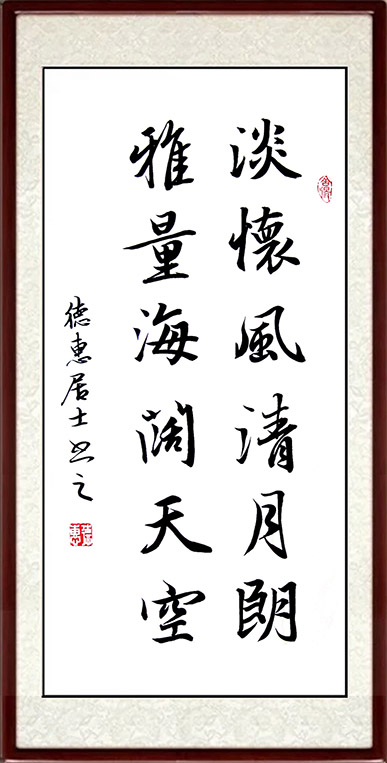 淡懷風清月朗
雅量海阔天空
德惠居士书之